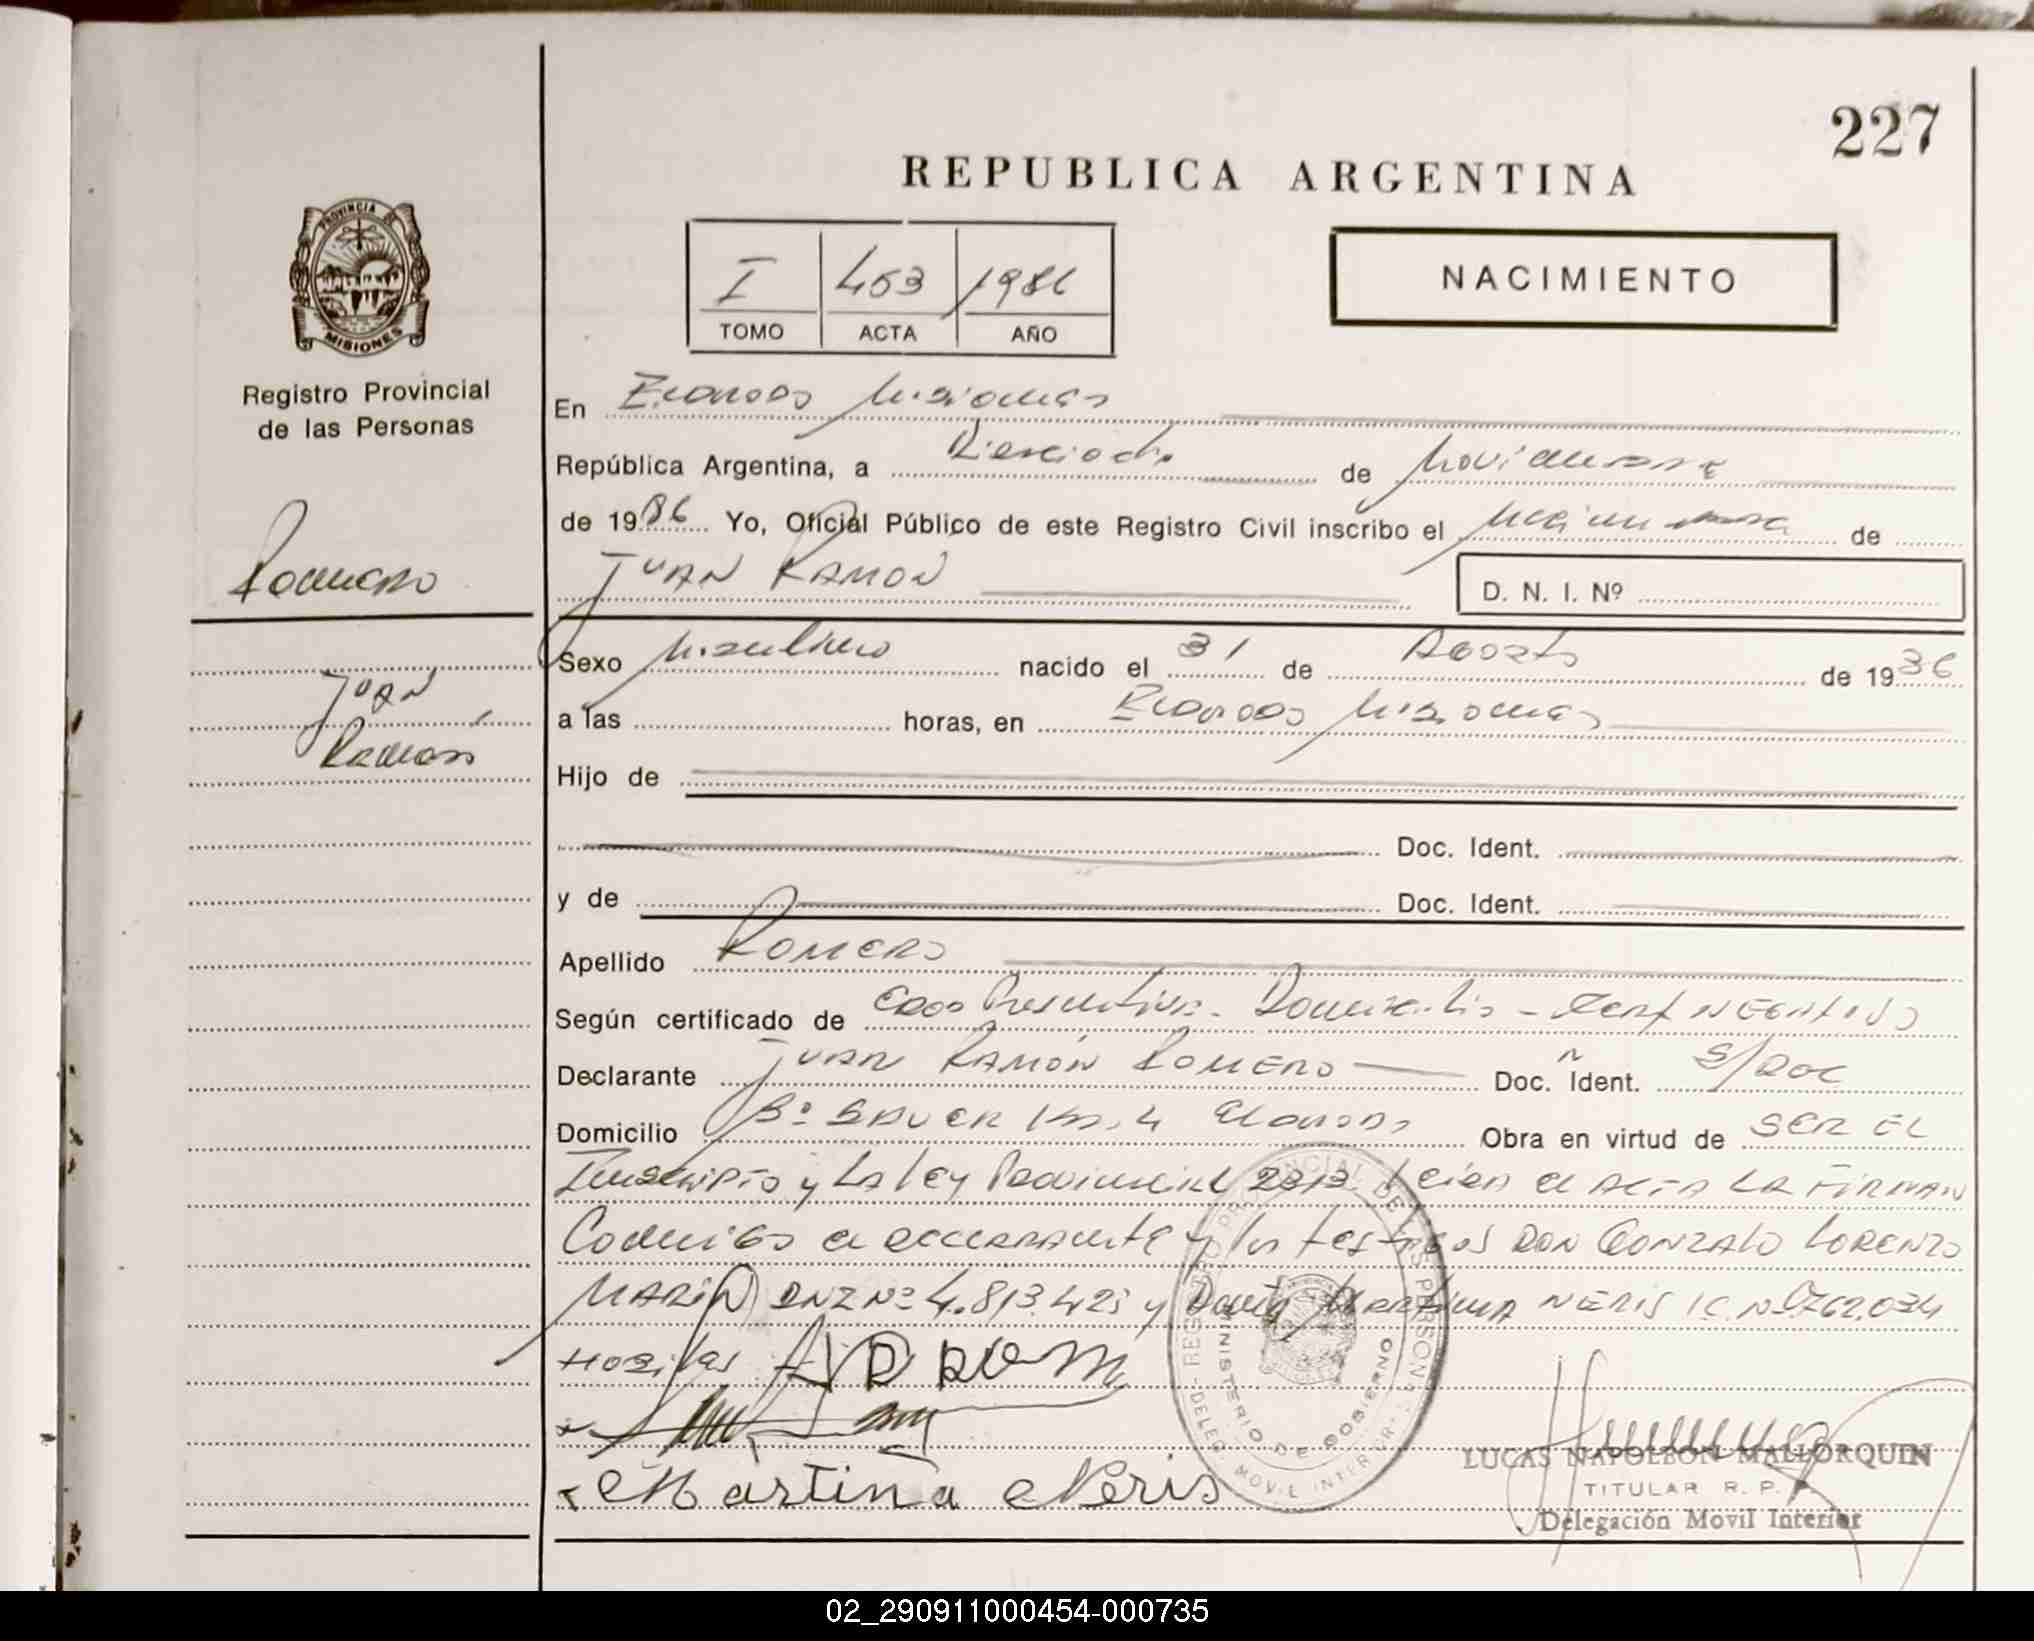 227
REPUBLICA ARGENTINA
PROVINCIA DE
MISIONES
Registro Provincial
de las Personas
I 453 1986
TOMO ACTA AÑO
NACIMIENTO
En Eldorado Misiones
República Argentina, a Dieciocho de Noviembre
de 1986 Yo, Oficial Público de este Registro Civil inscribo el Nacimiento de
JUAN RAMON
D. N. I. Nº
Romero
Juan
Ramón
Sexo Masculino nacido el 31 de Agosto de 1936
a las horas, en Eldorado Misiones
Hijo de
Doc. Ident.
y de Doc. Ident.
Apellido ROMERO
Según certificado de Edad Presuntiva - Domicilio - Cert NEGATIVO
Declarante JUAN RAMÓN ROMERO Doc. Ident. S/DOC
Domicilio Bº Km. 4 Eldorado Obra en virtud de SER EL
Inscripto y La ley Provincial Leída el ACTA LA FIRMAN
Conmigo el declarante y los testigos DON GONZALO LORENZO
MARIN DNI Nº y Doña Martina NERIS
REGISTRO PROVINCIAL DE LAS PERSONAS
MINISTERIO DE GOBIERNO
DELEG. MOVIL INTERIOR
Martina Neris
LUCAS NAPOLEON MALLORQUIN
TITULAR R. P.
Delegación Movil Interior
02_290911000454-000735